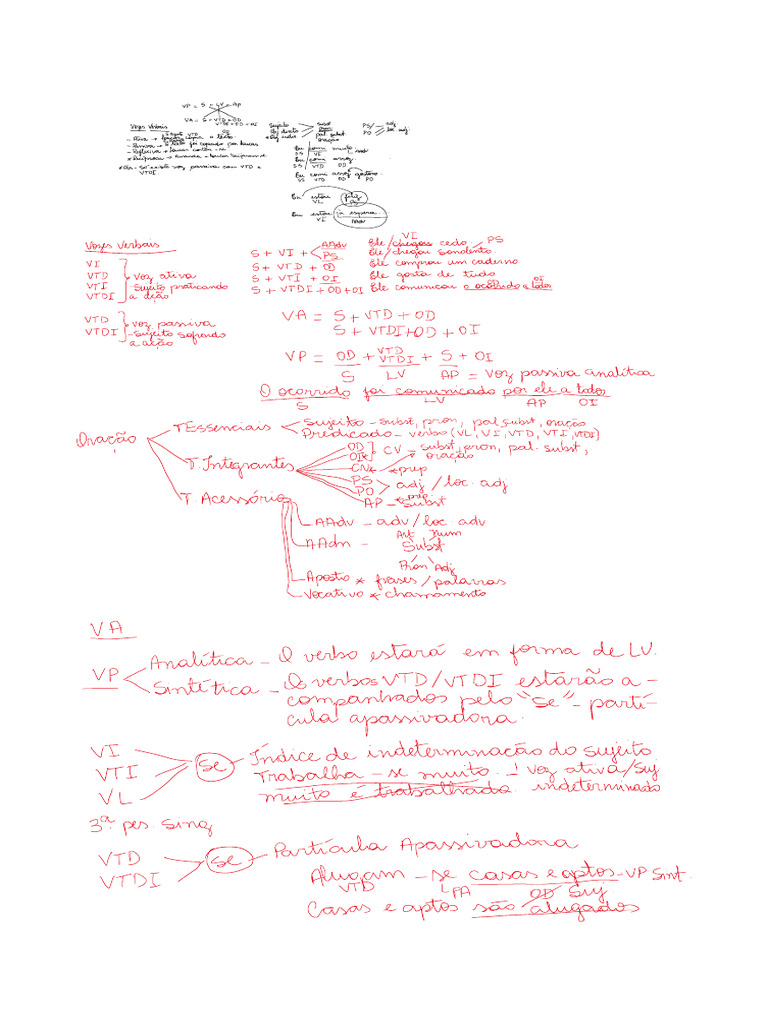 VP = S + LV + AP
VA = S + VTD + OD
VTDI + OD + OI
Vozes Verbais
- Ativa →
- Passiva →
- Reflexiva →
- Recíproca →
só existe voz passiva com VTD e
VTDI
Sujeito
Obj direto
subst
pron
pal. subst
oração
PS
PO
adj
loc adj
Eu comi muito
DS VI
Eu comi arroz.
DS VTD OD
Eu comi arroz gostoso.
VS VTD OD PO
Eu estou feliz
VL
Eu estou à espera
VI
Vozes Verbais
VI
VTD } voz ativa
VTI - Sujeito praticando
VTDI a ação
VTD } voz passiva
VTDI - Sujeito sofrendo
a ação
S + VI + < AAdv
PS
S + VTD + OD
S + VTI + OI
S + VTDI + OD + OI
VI
Ele chegou cedo PS
Ele chegou sonolento
Ele comprou um caderno
Ele gosta de tudo
OD OI
Ele comunicou o ocorrido a todos
VA = S + VTD + OD
S + VTDI + OD + OI
VP = OD + VTD VTDI + S + OI
S LV AP = Voz passiva analítica
O ocorrido foi comunicado por ele a todos
S LV AP OI
Oração
T Essenciais
Sujeito - subst, pron, pal. subst, oração
Predicado - verbo (VL, VI, VTD, VTI, VTDI)
T. Integrantes
OD
OI* } CV - subst, pron, pal. subst,
oração
CN* *prep
PS
PO > adj / loc. adj
*prep
AP - subst
T Acessório
AAdv - adv / loc adv
Art Num
AAdn - Subst
Pron Adj
Aposto * frases / palavras
Vocativo * chamamento
VA
VP
Analítica - O verbo estará em forma de LV.
Sintética - Os verbos VTD/VTDI estarão a-
companhados pelo "se" - partí-
cula apassivadora.
VI
VTI
VL
se - Índice de indeterminação do sujeito
Trabalha - se muito - voz ativa / Suj
muito é trabalhado indeterminado
3ª pes sing
VTD
VTDI
se - Partícula Apassivadora
Alugam - se casas e aptos - VP Sint.
VTD PA OD Suj
Casas e aptos são alugados